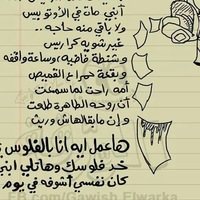 أبني مات في الأوتوبيس
ولا باقي منه حاجه ..
غير شوية كراريس
وشنطة فاضيه وساعة واقفه
و بقعة حمراء ع القميص
أمه راحت لما سمعت
أن روحه الطاهرة طلعت
وإن مابقالهاش وريث
هاعمل ايه أنا بالفلوس
خد فلوسك وهاتلي ابني
كان نفسي أشوفه في يوم
FB.com/Gawish Elwarka